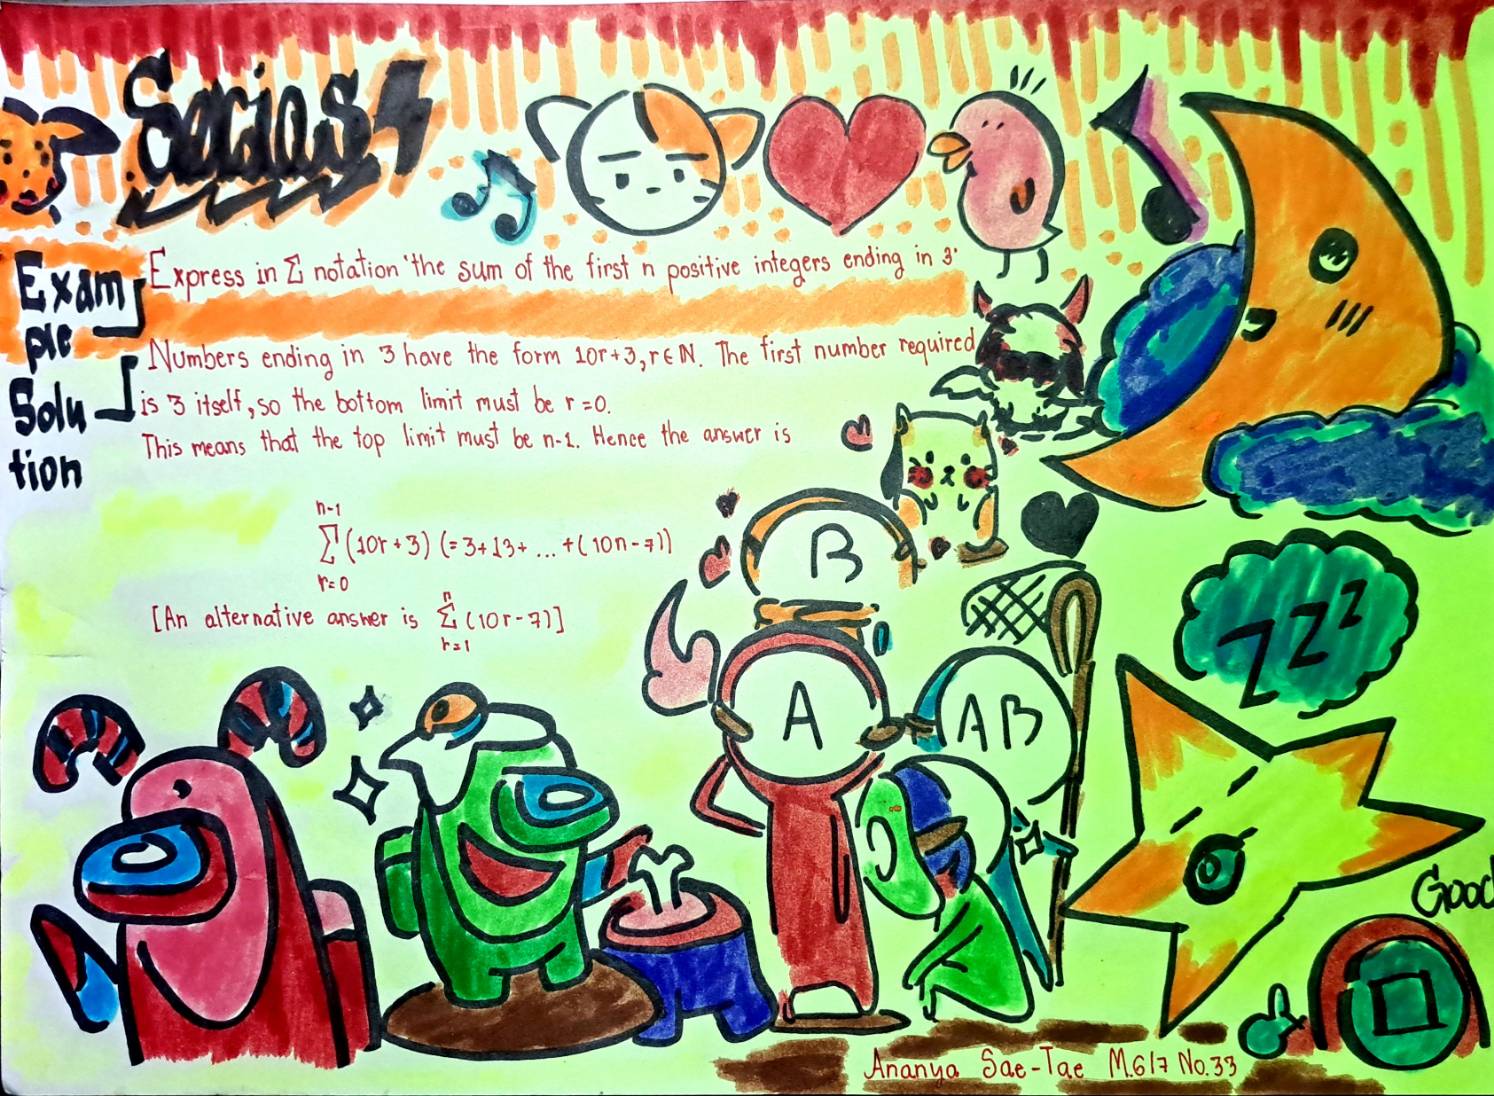 Series 4
Exam
ple
Express in Σ notation 'the sum of the first n positive integers ending in 3'
Solu
tion
Numbers ending in 3 have the form 10r+3, r ∈ ℕ. The first number required
is 3 itself, so the bottom limit must be r=0.
This means that the top limit must be n-1. Hence the answer is
n-1
Σ (10r+3) (=3+13+ ... +(10n-7))
r=0
[An alternative answer is Σ (10r-7)]
n
r=1
B
A
AB
zzz
Good
Ananya Sae-Tae M.6/7 No.33